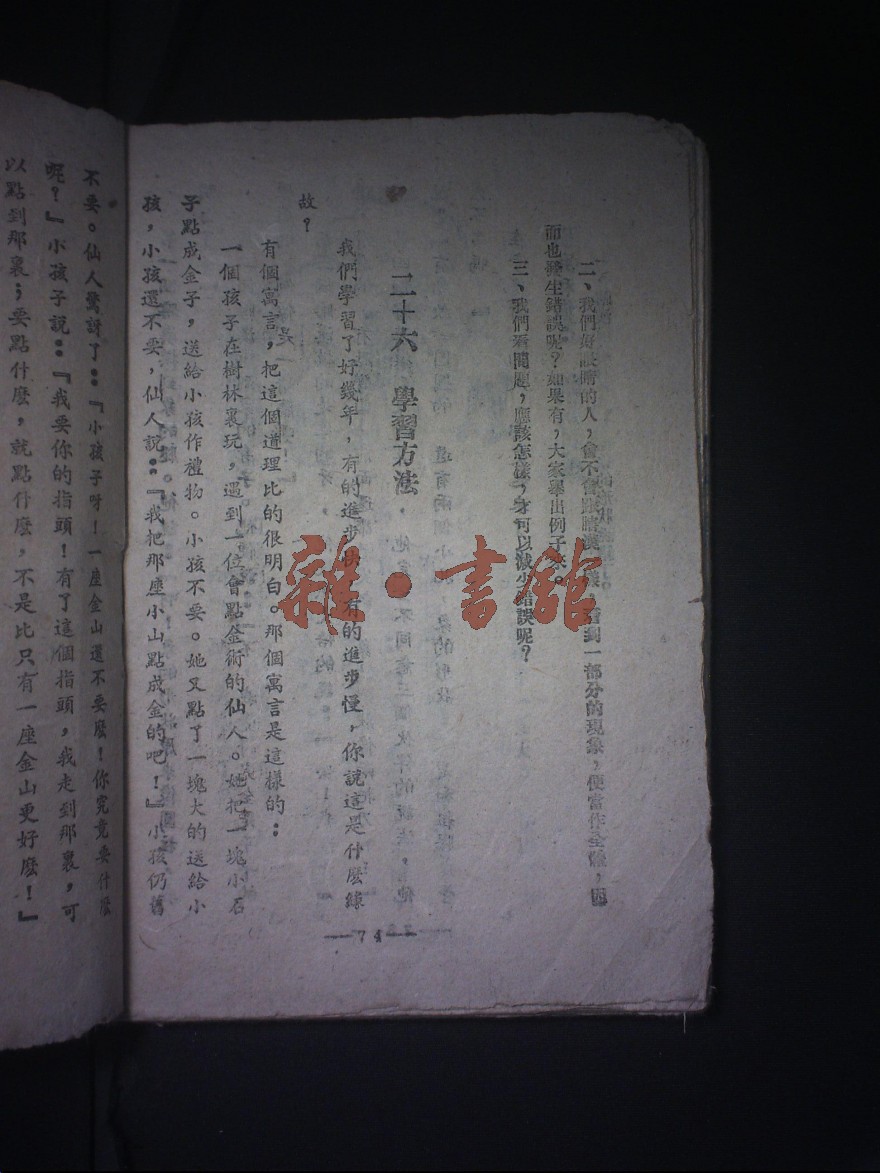 二、我們好眼睛的人，會不會瞎，看到一部分的現象，便當作全體，因
而也發生錯誤呢？如果有，大家舉出例子來。
三、我們看問題，應該怎樣，才可以減少錯誤呢？
二十六 學習方法
我們學習了好幾年，有的進步快，有的進步慢，你說這是什麼緣
故？
有個寓言，把這個道理比的很明白。那個寓言是這樣的：
一個孩子在樹林裏玩，遇到一位會點金術的仙人。她把一塊小石
子點成金子，送給小孩作禮物。小孩不要。她又點了一塊大的送給小
孩，小孩還不要，仙人說：『我把那座小山點成金的吧！』小孩仍舊
—74—
不要。仙人驚訝了：『小孩子呀！一座金山還不要麼！你究竟要什麼
呢？』小孩子說：『我要你的指頭！有了這個指頭，我走到那裏，可
以點到那裏；要點什麼，就點什麼，不是比只有一座金山更好麼！』
雜·書館